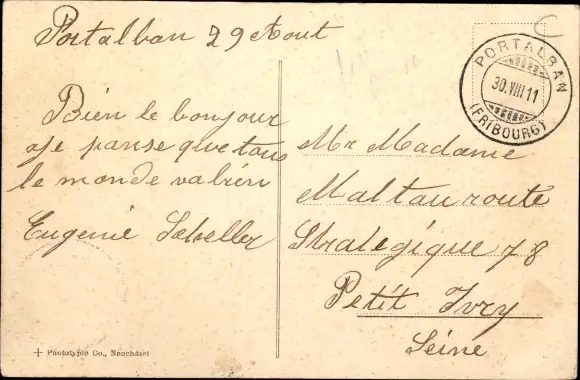 Portalban 29 Aout
PORTALBAN
30.VIII.11
(FRIBOURG)
Bien le bonjour
je panse que tous
le monde va bien
Eugenie Scheller
Mr Madame
Maltau route
Strategique 78
Petit Ivry
Seine
Phototypie Co., Neuchâtel